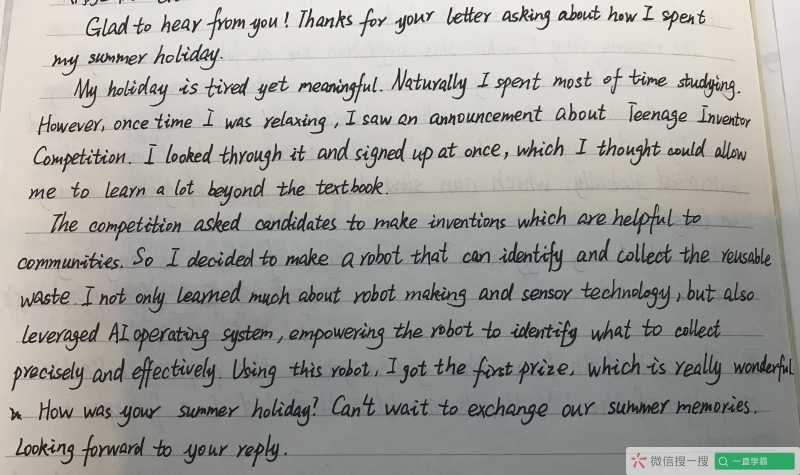 Glad to hear from you! Thanks for your letter asking about how I spent
my summer holiday.
My holiday is tired yet meaningful. Naturally I spent most of time studying.
However, once time I was relaxing, I saw an announcement about Teenage Inventor
Competition. I looked through it and signed up at once, which I thought could allow
me to learn a lot beyond the textbook.
The competition asked candidates to make inventions which are helpful to
communities. So I decided to make a robot that can identify and collect the reusable
waste. I not only learned much about robot making and sensor technology, but also
leveraged AI operating system, empowering the robot to identify what to collect
precisely and effectively. Using this robot, I got the first prize, which is really wonderful
How was your summer holiday? Can't wait to exchange our summer memories.
Looking forward to your reply.
微信搜一搜 一直学霸